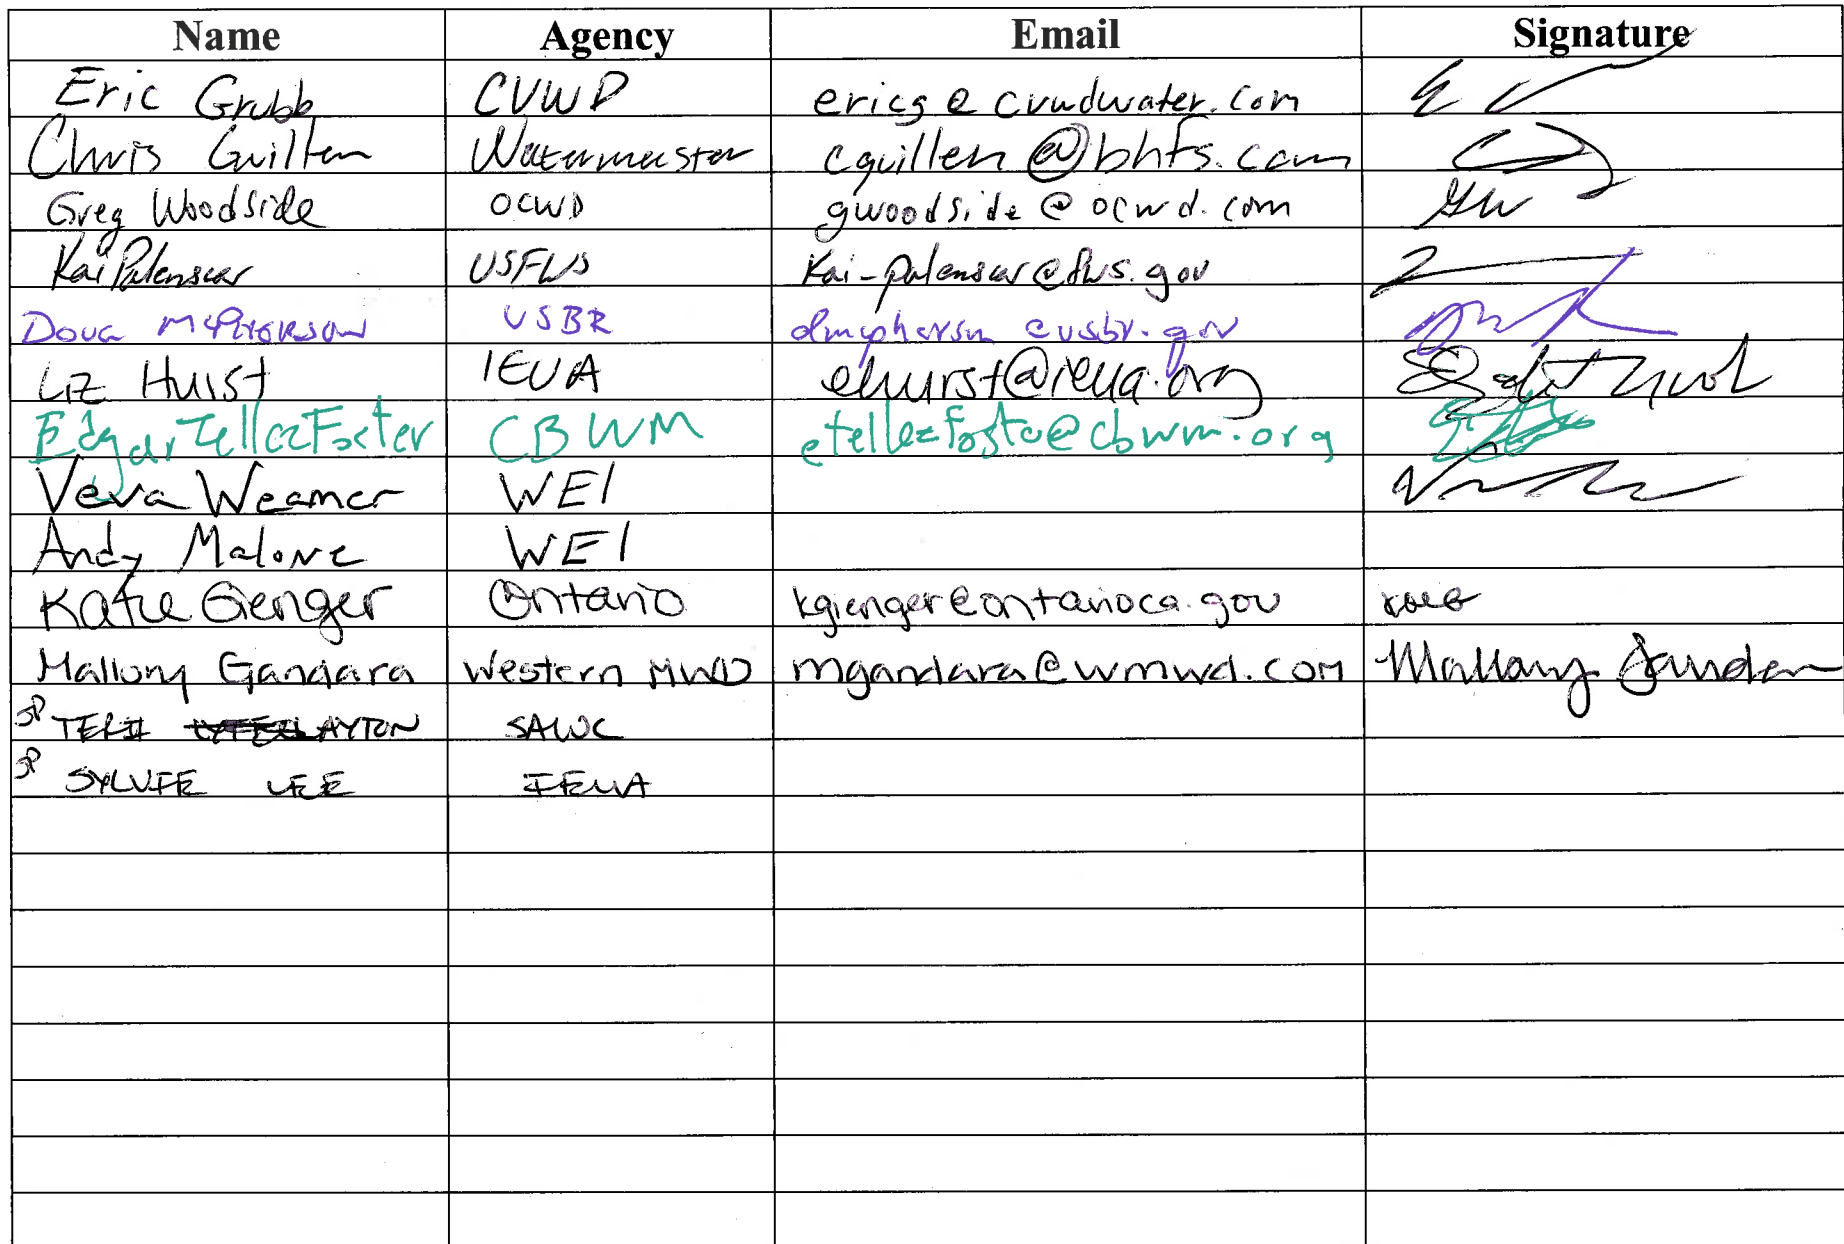 Name Agency Email Signature
Eric Grubb CVWD ericg@cvwdwater.com
Chris Guillen Watermaster cguillen@bhfs.com
Greg Woodside OCWD gwoodside@ocwd.com GW
Kai Palenscar USFWS Kai-palenscar@fws.gov
Doug McPherson USBR dmcpherson@usbr.gov
Liz Hurst IEUA ehurst@ieua.org
Edgar Tellez Foster CBWM etellezfoster@cbwm.org
Veva Weamer WEI
Andy Malone WEI
Katie Gienger Ontario kgienger@ontarioca.gov
Mallory Gandara Western MWD mgandara@wmwd.com Mallory Gandara
SP TERI LAYTON SAWC
SP SYLVIE LEE IEUA